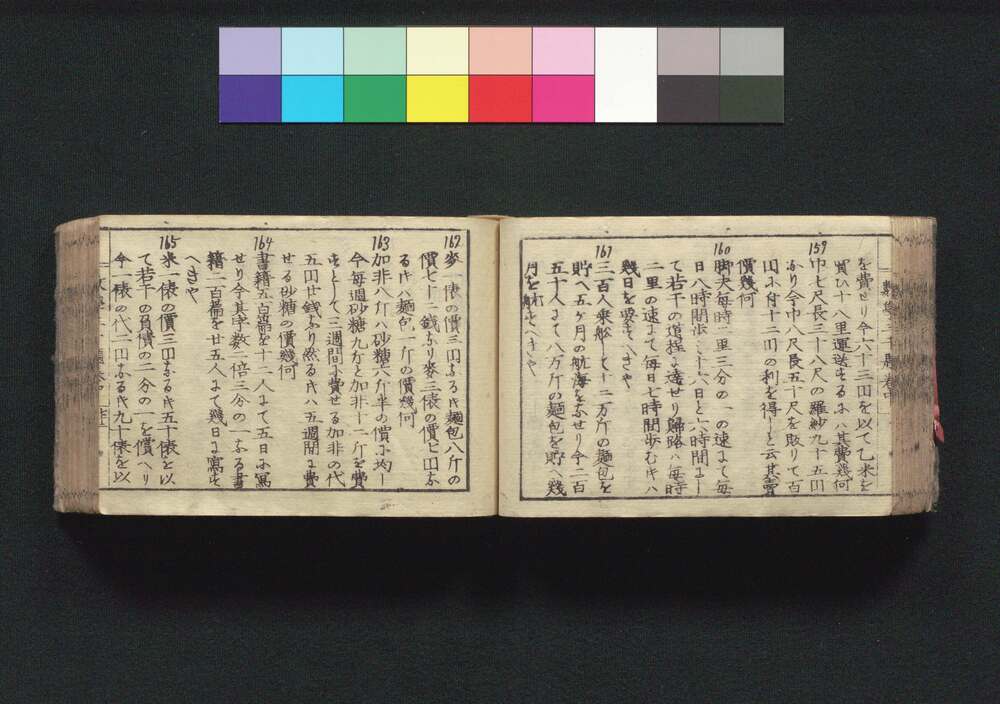 を費せり今六十三円を以て乙米を
買ひ十八里運送するには其費幾何
159
巾七尺長三十八尺の羅紗九十五円
なり今巾八尺長五十尺を取りて百
円に付十二円の利を得しと云其賣
價幾何
160
脚夫毎時二里三分の一の速にて毎
日八時間歩み十六日と六時間にし
て若干の道程に達せり歸路は毎時
二里の速にて毎日七時間歩むときは
幾日を要すへきや
161
三百人乗船して一二万斤の麺包を
貯へ五ヶ月の航海をなせり今二百
五十人にて八万斤の麺包を貯へ幾
月を
162
麥一俵の價三円なるとき麺包八斤の
價七十二銭なり麥三俵の價七円な
るときは麺包一斤の價幾何
163
加非八斤は砂糖六斤半の價に均し
今毎週砂糖九斤と加非十一斤を費
すとして三週間に費せる加非の代
五円廿銭なり然るときは五週間に費
せる砂糖の價幾何
164
書籍五百篇を十二人にて五日に寫
せり今其字数二倍三分の一なる書
籍二百篇を廿五人にて幾日に寫す
へきや
165
米一俵の價三円なるとき五十俵を以
て若干の負債の二分の一を償へり
今一俵の代二円なるとき九十俵を以